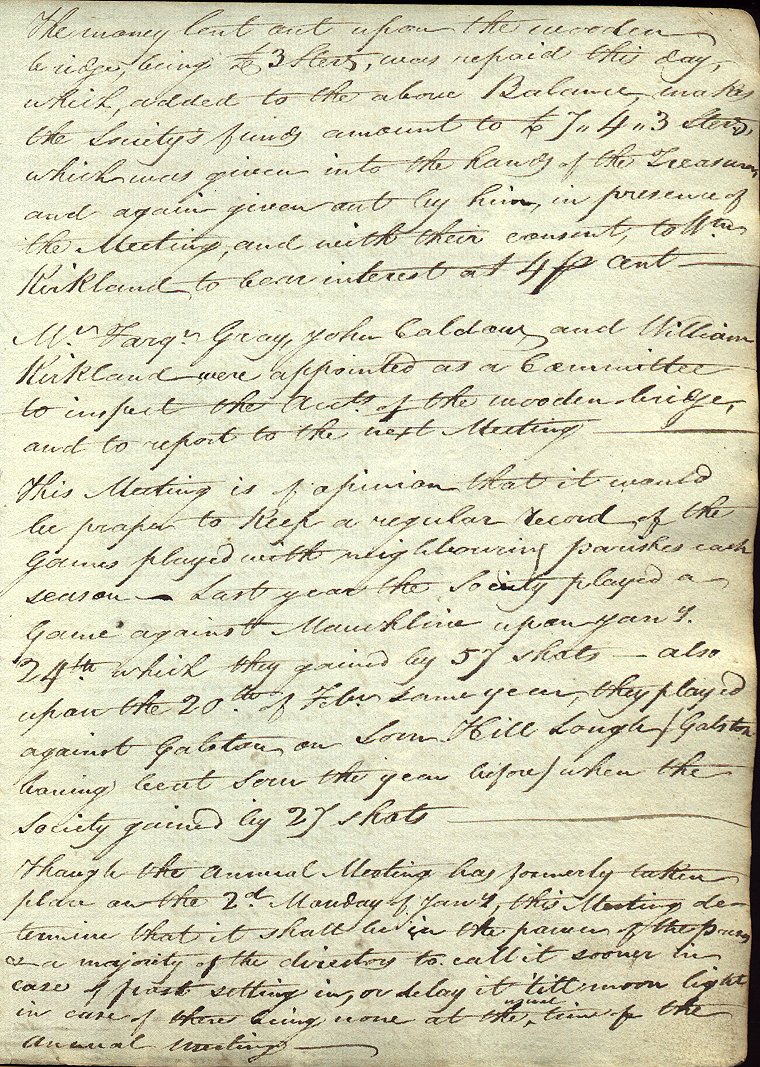 The money lent out upon the wooden
bridge, being £3 Sterg, was repaid this day,
which, added to the above Balance, makes
the Society's funds amount to £7,,4,,3 Sterg,
which was given into the hands of the Treasurer,
and again given out by him, in presence of
the Meeting, and with their consent, to Wm
Kirkland to bear interest at 4 p Cent —
Mr Farqr Gray, John Caldow, and William
Kirkland were appointed as a Committee
to inspect the Accts. of the wooden bridge,
and to report to the next Meeting —
This Meeting is of opinion that it would
be proper to keep a regular record of the
Games played with neighbouring parishes each
season — Last year the Society played a
Game against Mauchline upon Jany.
24th which they gained by 57 shots — also
upon the 20th of Febr same year, they played
against Galston on Sorn Hill Lough (Galston
having beat Sorn the year before) when the
Society gained by 27 shots —
Though the Annual Meeting has formerly taken
place on the 2d Monday of Jany, this Meeting de-
termine that it shall be in the power of the Preses
& a majority of the directors to call it sooner in
case of frost setting in, or delay it 'till moon light
in case of there being none at the usual time for the
Annual Meeting —